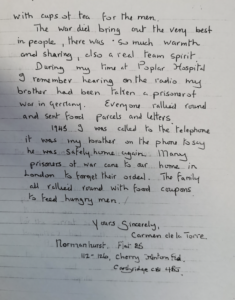 with cups of tea for the men.
The war did bring out the very best
in people, there was so much warmth
and sharing, also a real team spirit.
During my time at Poplar Hospital
I remember hearing on the radio my
brother had been taken a prisoner of
war in Germany. Everyone rallied round
and sent food parcels and letters.
1945 I was called to the telephone
it was my brother on the phone to say
he was safely home again. Many
prisoners of war came to our home in
London to forget their ordeal. The family
all rallied round with food coupons
to feed hungry men.
Yours Sincerely,
Carmen de la Torre
Normanhurst. Flat 26
Cherry Hinton Rd
Cambridge CB1